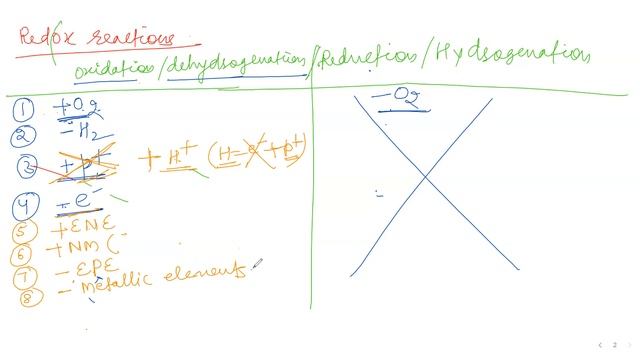 Redox reactions
oxidation/dehydrogenation/Reduction/Hydrogenation
① +O2 - O2
② - H2
③ + p+ + H+ (H = e- + p+)
④ - e-
⑤ + ENE
⑥ + NM (
⑦ - EPE
⑧ - Metallic elements
2